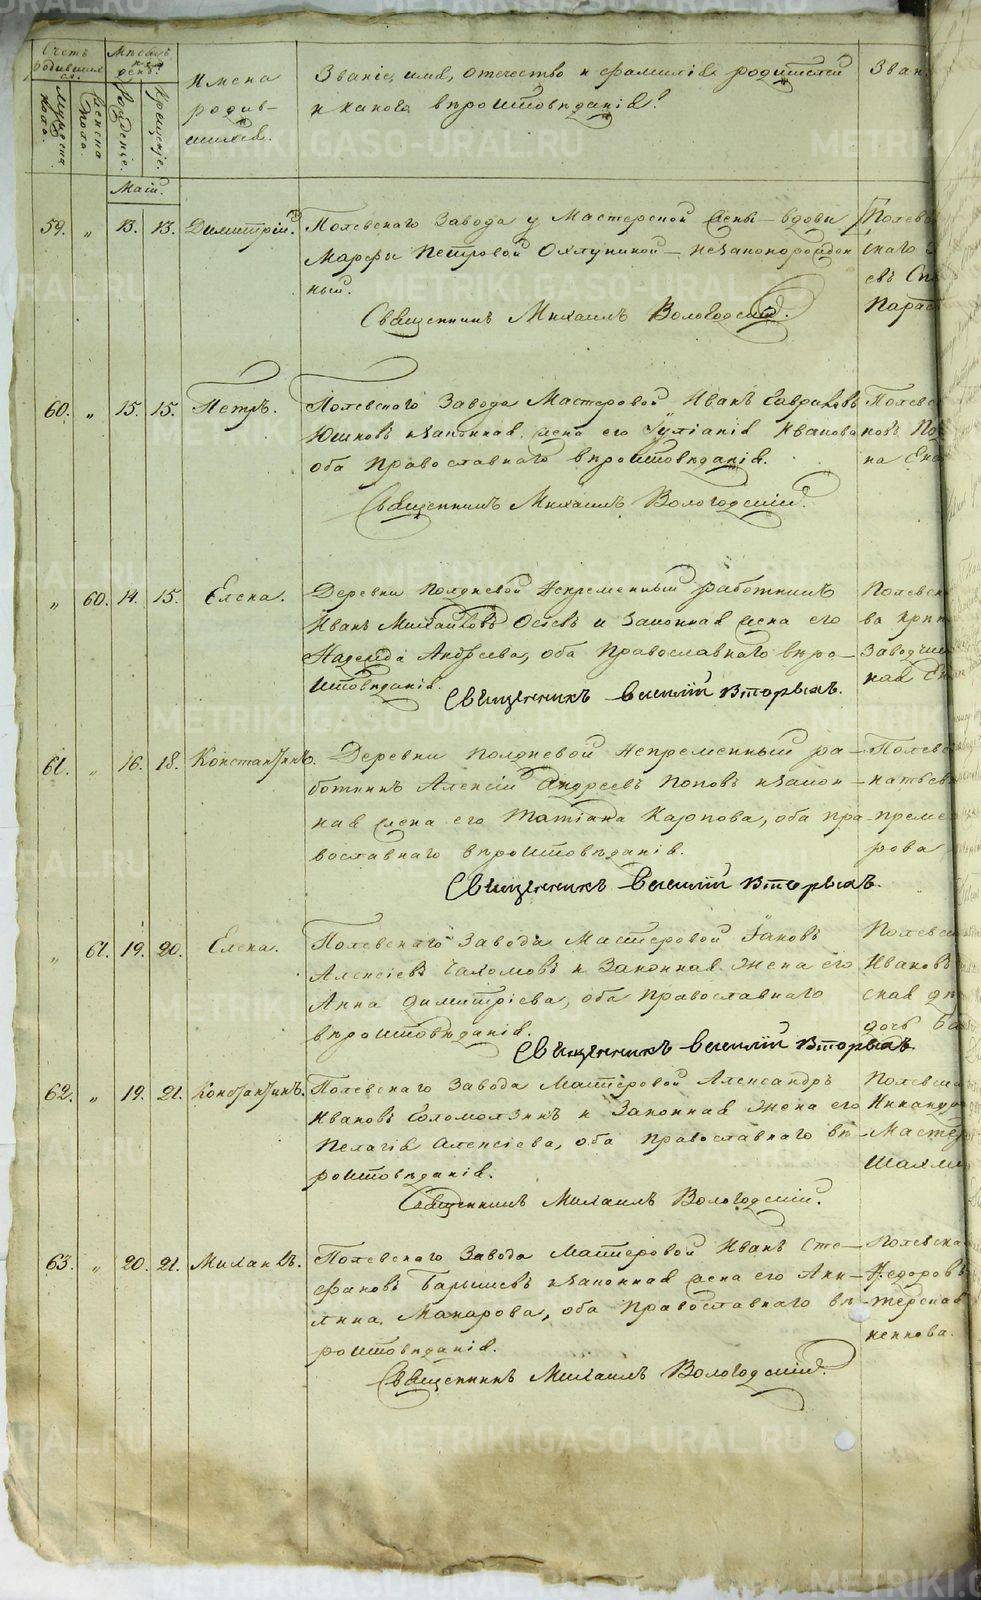 Счетъ родившихся.
Мужеска пола.
Женска пола.
Месяцъ и день.
Рожденіе.
Крещеніе.
Имена
родив-
шихся.
Званіе, имя, отечество и фамилія родителей
и какого вѣроисповѣданія?
Зван
Маій.
59. " 13. 13. Димитрій.
Полевскаго Завода у Мастерской жены - вдовы
Марфы Петровой - незаконорожден
ный.
Священникъ Михаилъ Вологодскій.
Полев
скаго
евъ
60. " 15. 15. Петръ.
Полевскаго Завода Мастеровой Иванъ Савра
Юшковъ и законная жена его Іуліанія Иванова
оба Православнаго вѣроисповѣданія.
Священникъ Михаилъ Вологодскій.
Полевс
новъ
на
" 60. 14. 15. Елена.
Деревни Полдневой Непременный работникъ
Иванъ Михайловъ Осѣевъ и законная жена его
Надежда Андреева, оба Православнаго вѣро-
исповѣданія.
Священникъ Василій Вторыхъ.
Полевск
ва
Заводчи
кая
61. " 16. 18. Константинъ.
Деревни Полдневой Непременный ра-
ботникъ Алексій Андреевъ Поповъ и закон-
ная жена его Татіана Карпова, оба пра-
вославнаго вѣроисповѣданія.
Священникъ Василій Вторыхъ.
Полевс
натьев
преме
рова
" 61. 19. 20. Елена.
Полевскаго Завода Мастеровой Іаковъ
Алексіевъ и Законная Жена его
Анна Димитріева, оба Православнаго
вѣроисповѣданія.
Священникъ Василій Вторыхъ.
Полевск
Ивановъ
ская
дочь
62. " 19. 21. Константинъ.
Полевскаго Завода Мастеровой Александръ
Ивановъ и Законная Жена его
Пелагія Алексіева, оба Православнаго вѣ-
роисповѣданія.
Священникъ Михаилъ Вологодскій.
Полевск
Никандр
Мастер
63. " 20. 21. Михаилъ.
Полевскаго Завода Мастеровой Иванъ Сте-
фановъ и законная жена его Аки-
лина Макарова, оба Православнаго вѣ-
роисповѣданія.
Священникъ Михаилъ Вологодскій.
Полевска
Ѳедоровъ
терская
ненкова.
METRIKI.GASO-URAL.RU